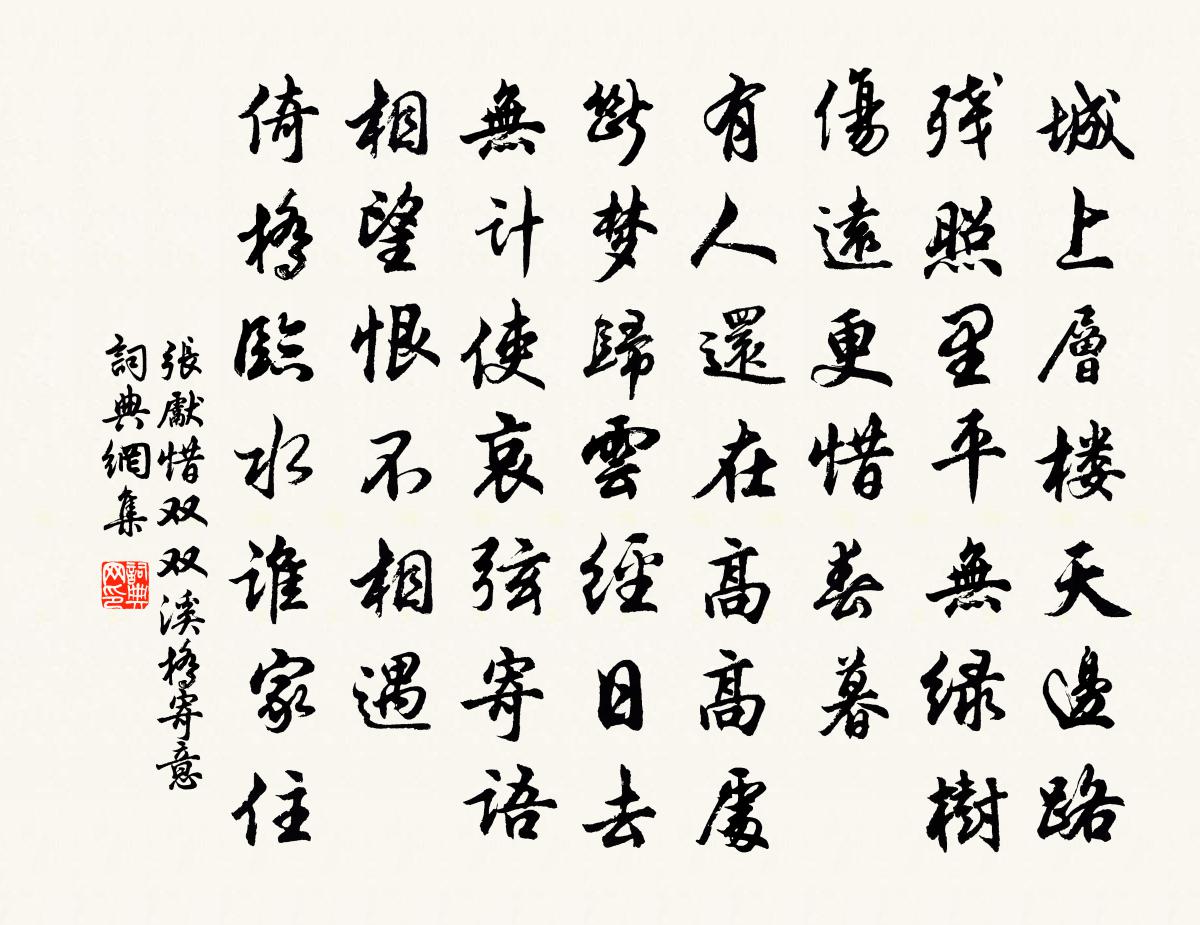 城上層楼天邊路
残照里平無绿樹
傷遠更惜春暮
有人還在高高處
斷梦歸雲經日去
無计使哀弦寄语
相望恨不相遇
倚橋臨水谁家住
張獻惜双双溪橋寄意
詞典網集
詞典网印